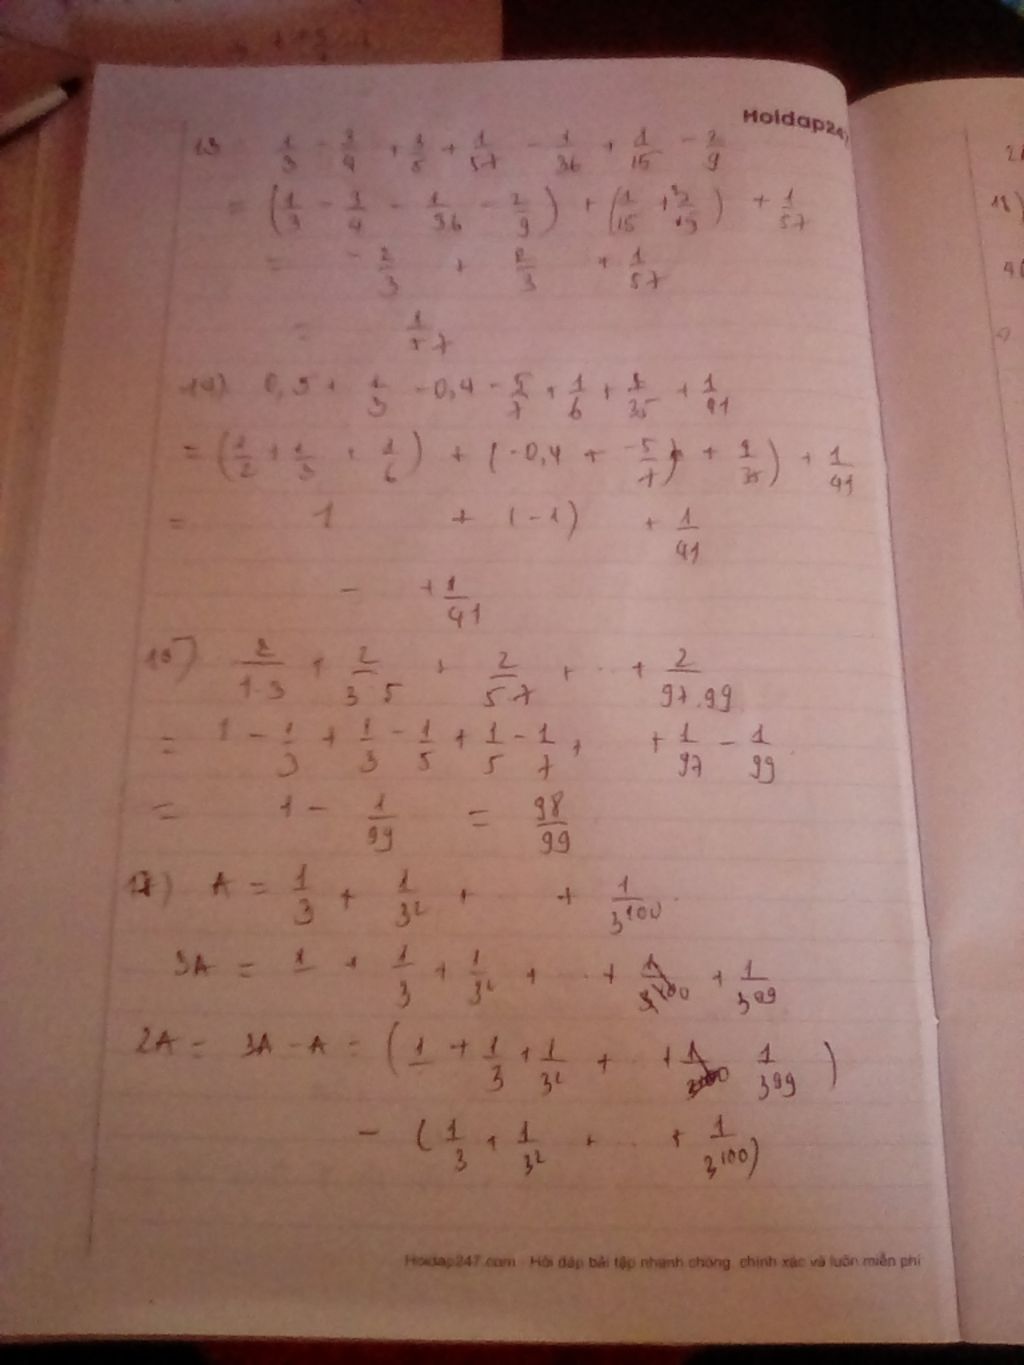 Hoidap247
13 1/3 - 3/4 + 3/5 + 1/57 - 1/36 + 1/15 - 2/9
= (1/3 - 3/4 - 1/36 - 2/9) + (1/15 + 3/5) + 1/57
= -2/3 + 2/3 + 1/57
= 1/57
0,5 + 1/3 - 0,4 - 5/7 + 1/6 + 4/35 + 1/41
= (1/2 + 1/3 + 1/6) + (-0,4 + -5/7 + 4/35) + 1/41
= 1 + (-1) + 1/41
= + 1/41
2/1.3 + 2/3.5 + 2/5.7 + ... + 2/97.99
= 1 - 1/3 + 1/3 - 1/5 + 1/5 - 1/7 + + 1/97 - 1/99
= 1 - 1/99 = 98/99
17) A = 1/3 + 1/3² + ... + 1/3¹⁰⁰
3A = 1 + 1/3 + 1/3² + ... + 1/3⁹⁹
2A = 3A - A = (1 + 1/3 + 1/3² + ... + 1/3⁹⁹)
- (1/3 + 1/3² + ... + 1/3¹⁰⁰)
Hoidap247.com - Hỏi đáp bài tập nhanh chóng, chính xác và luôn miễn phí